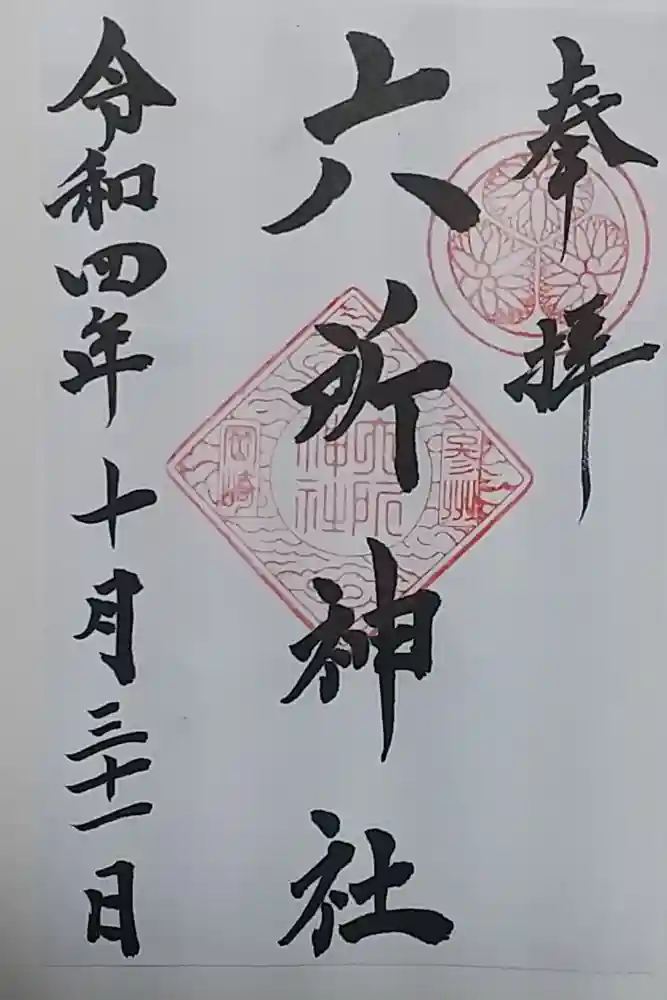 奉拝
六所神社
参州
六所
神社
岡崎
令和四年十月三十一日